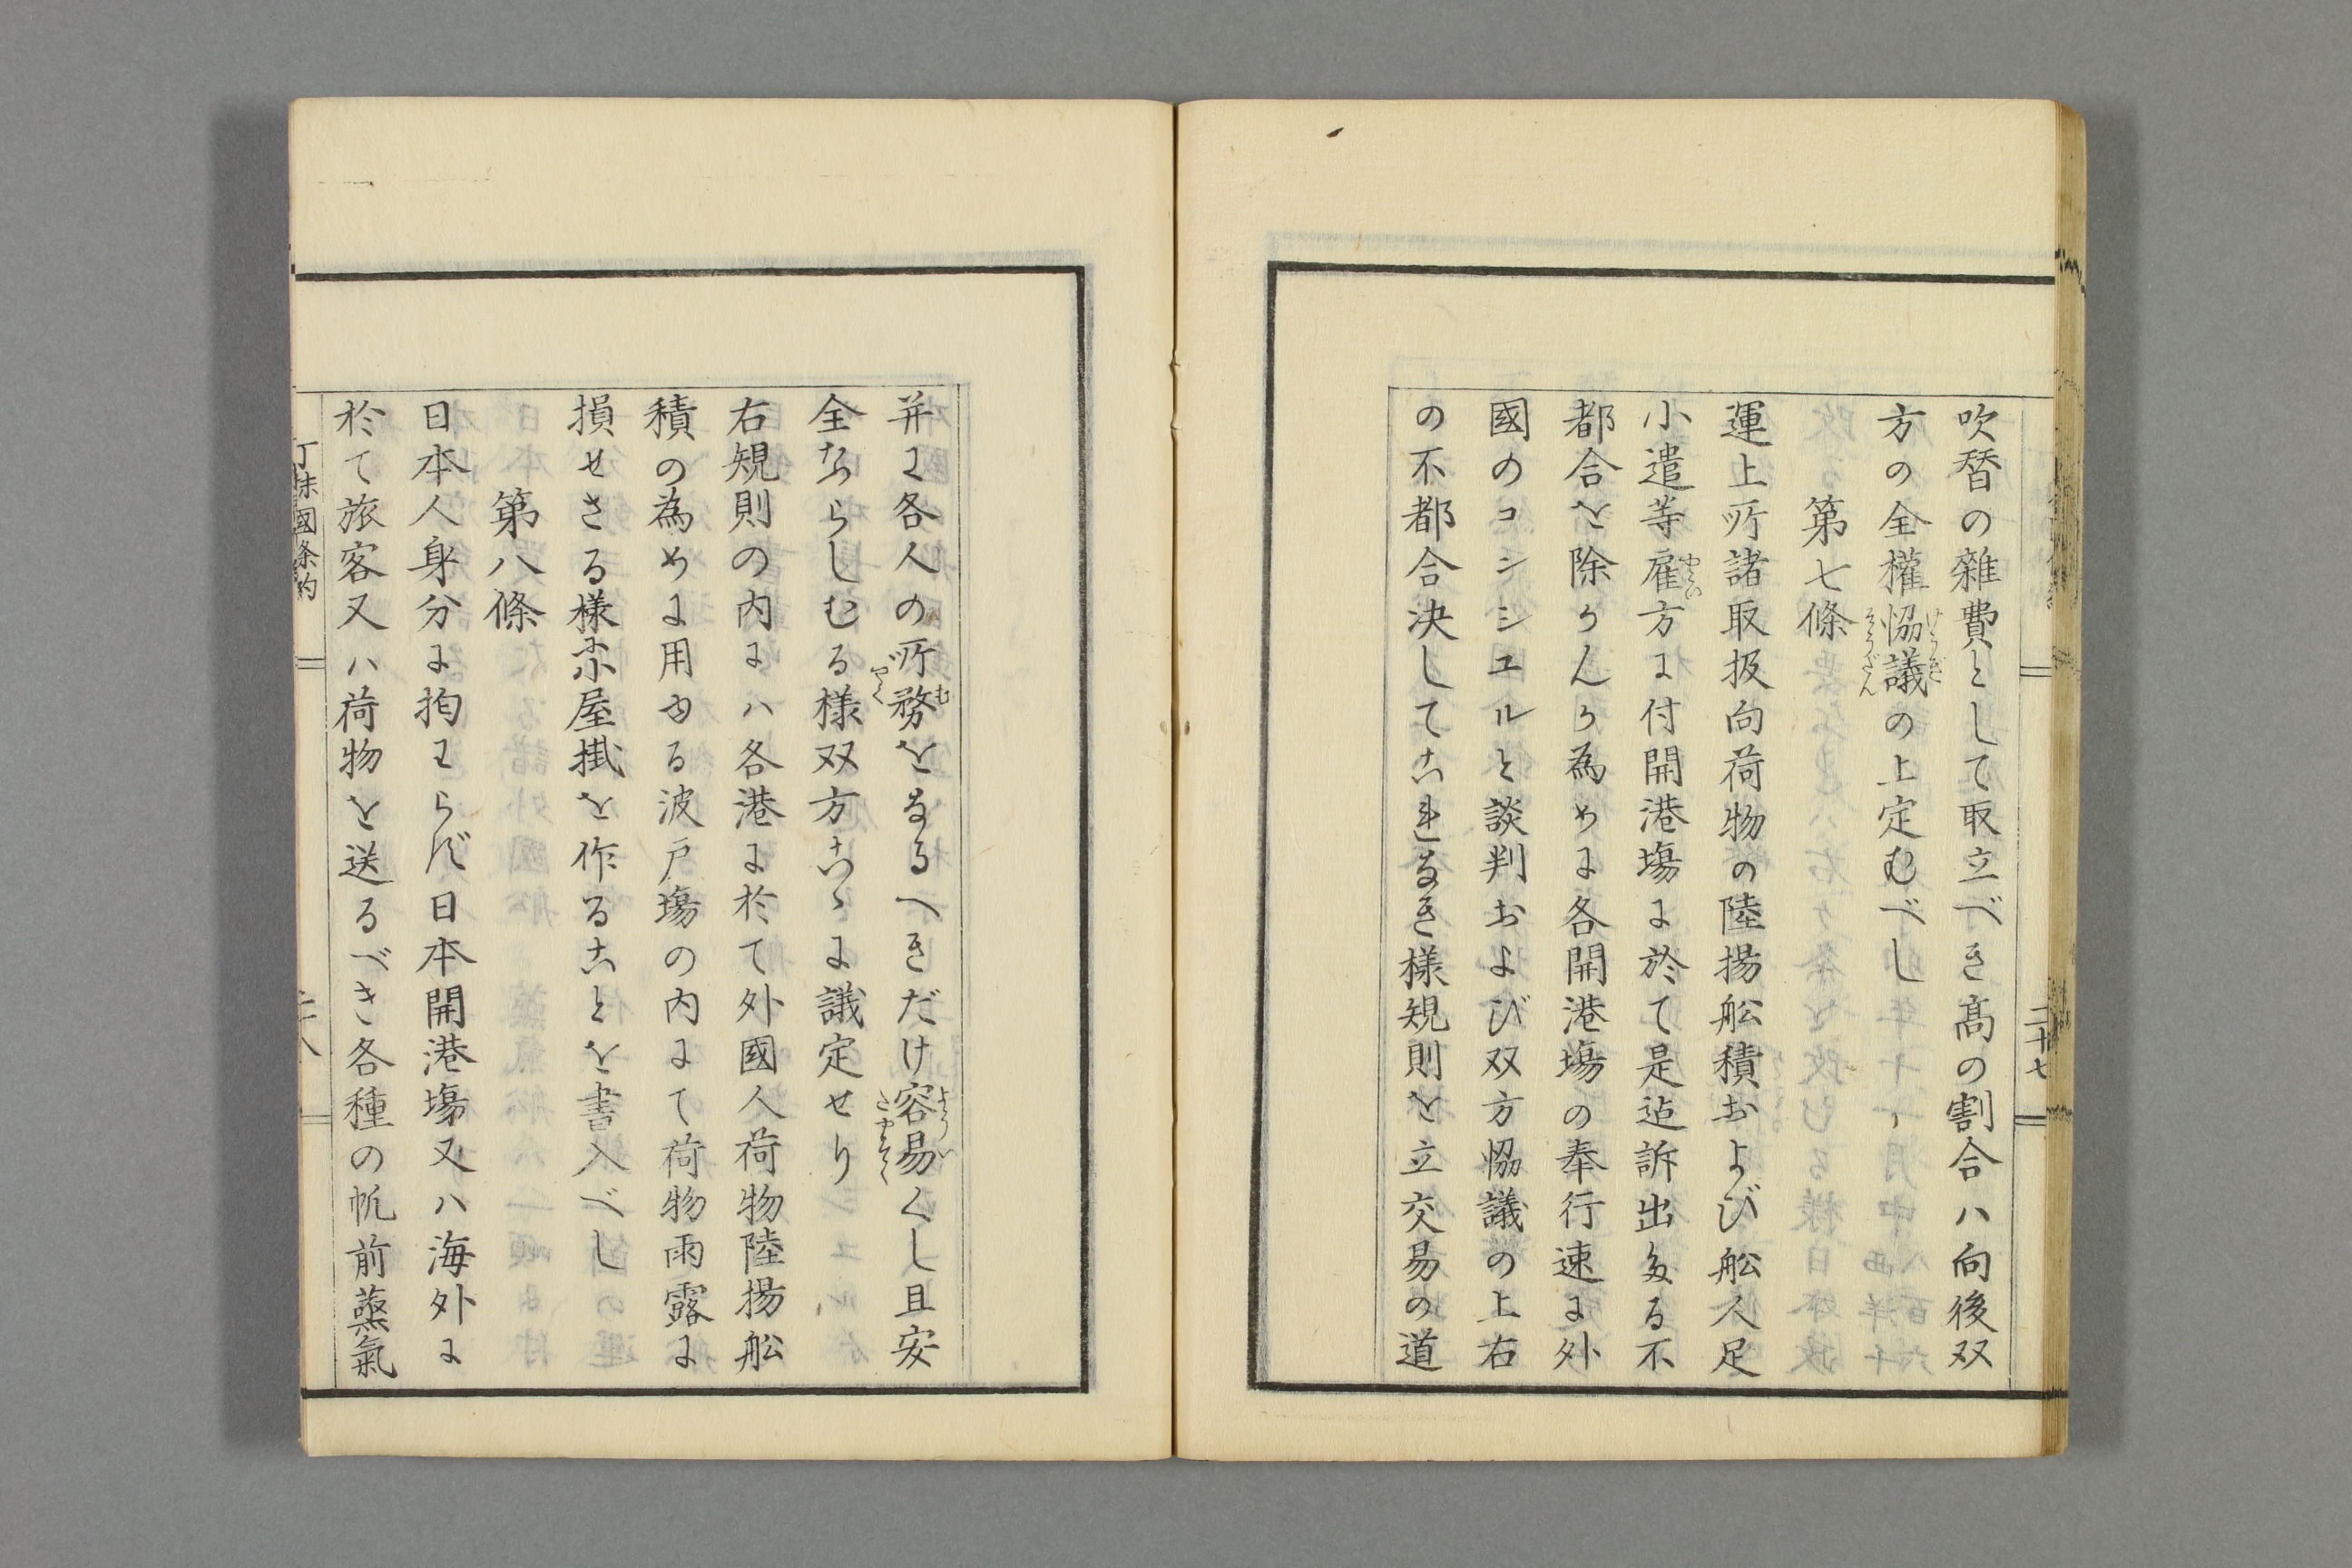 吹替の雑費として取立べき髙の割合ハ向後双
方の全權恊議の上定むべし
けうぎ
そうだん
第七條
運上所諸取扱向荷物の陸揚舩積および舩人足
小遣等雇方に付開港塲に於て是迠訴出たる不
やとい
都合を除かんか為めに各開港塲の奉行速に外
國のコンシユルと談判および双方恊議の上右
の不都合决してこれなき様規則を立交易の道
二十七
并に各人の所務をなるへきだけ容易くし且安
む
ようい
たやすく
全ならしむる様双方こゝに議定せり
右規則の内にハ各港に於て外國人荷物陸揚舩
積の為めに用ゆる波戸塲の内にて荷物雨露に
損せさる様に小屋掛を作ることを書入べし
第八條
日本人身分に拘わらず日本開港塲又ハ海外に
於て旅客又ハ荷物を送るべき各種の帆前蒸氣
丁抹國条約
二十八